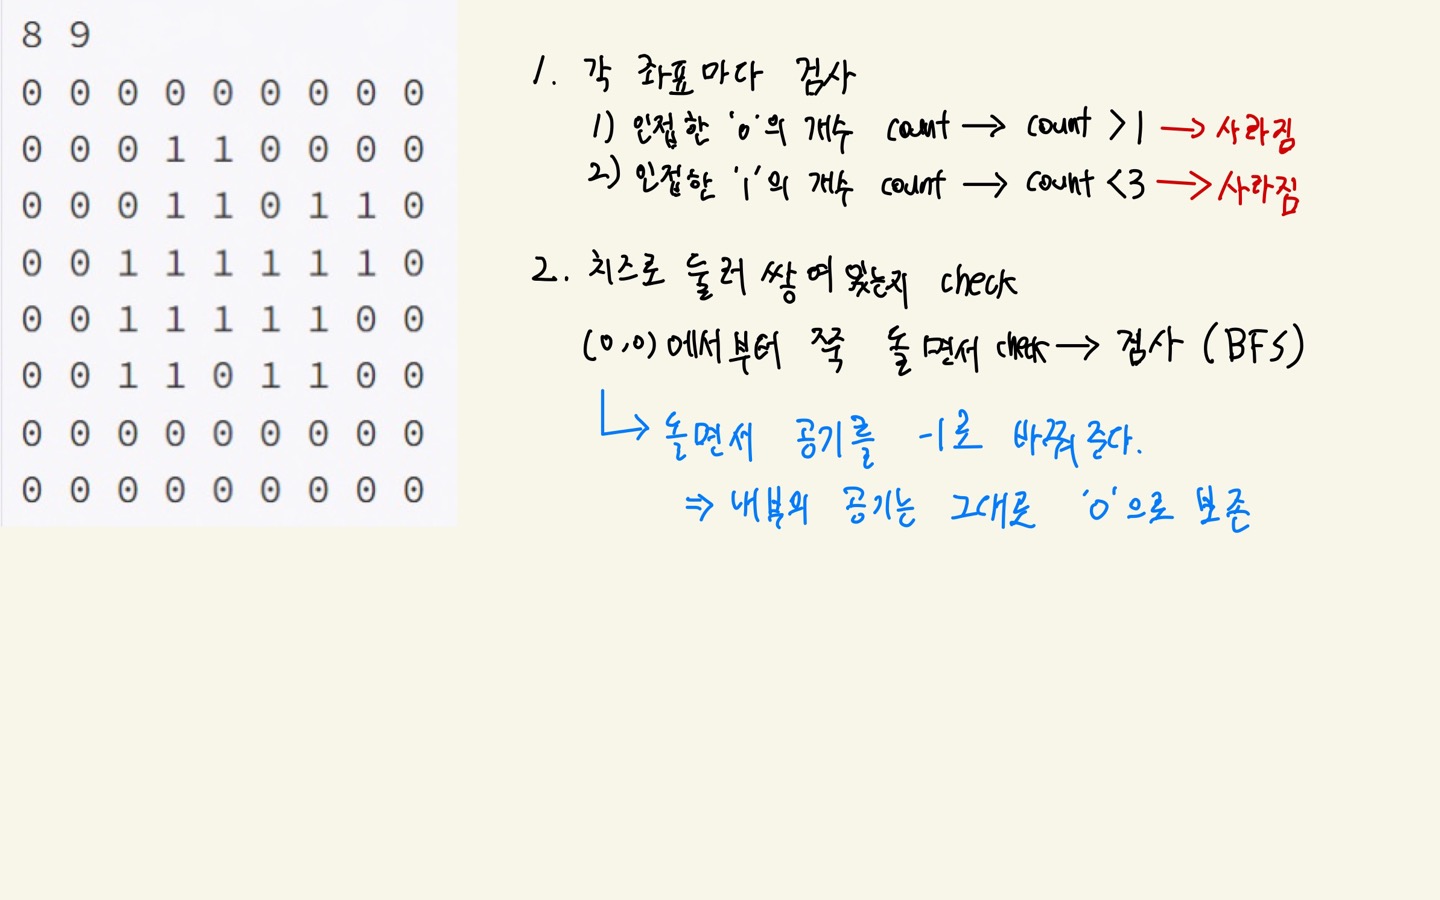 8 9
0 0 0 0 0 0 0 0 0
0 0 0 1 1 0 0 0 0
0 0 0 1 1 0 1 1 0
0 0 1 1 1 1 1 1 0
0 0 1 1 1 1 1 0 0
0 0 1 1 0 1 1 0 0
0 0 0 0 0 0 0 0 0
0 0 0 0 0 0 0 0 0
1. 각 좌표마다 검사
1) 인접한 '0'의 개수 count → count >1 → 사라짐
2) 인접한 '1'의 개수 count → count <3 → 사라짐
2. 치즈로 둘러 쌓여있는지 check
(0,0)에서부터 쭉 돌면서 check → 검사 (BFS)
↳ 돌면서 공기를 -1로 바꿔준다.
⇒ 내부의 공기는 그대로 '0'으로 보존